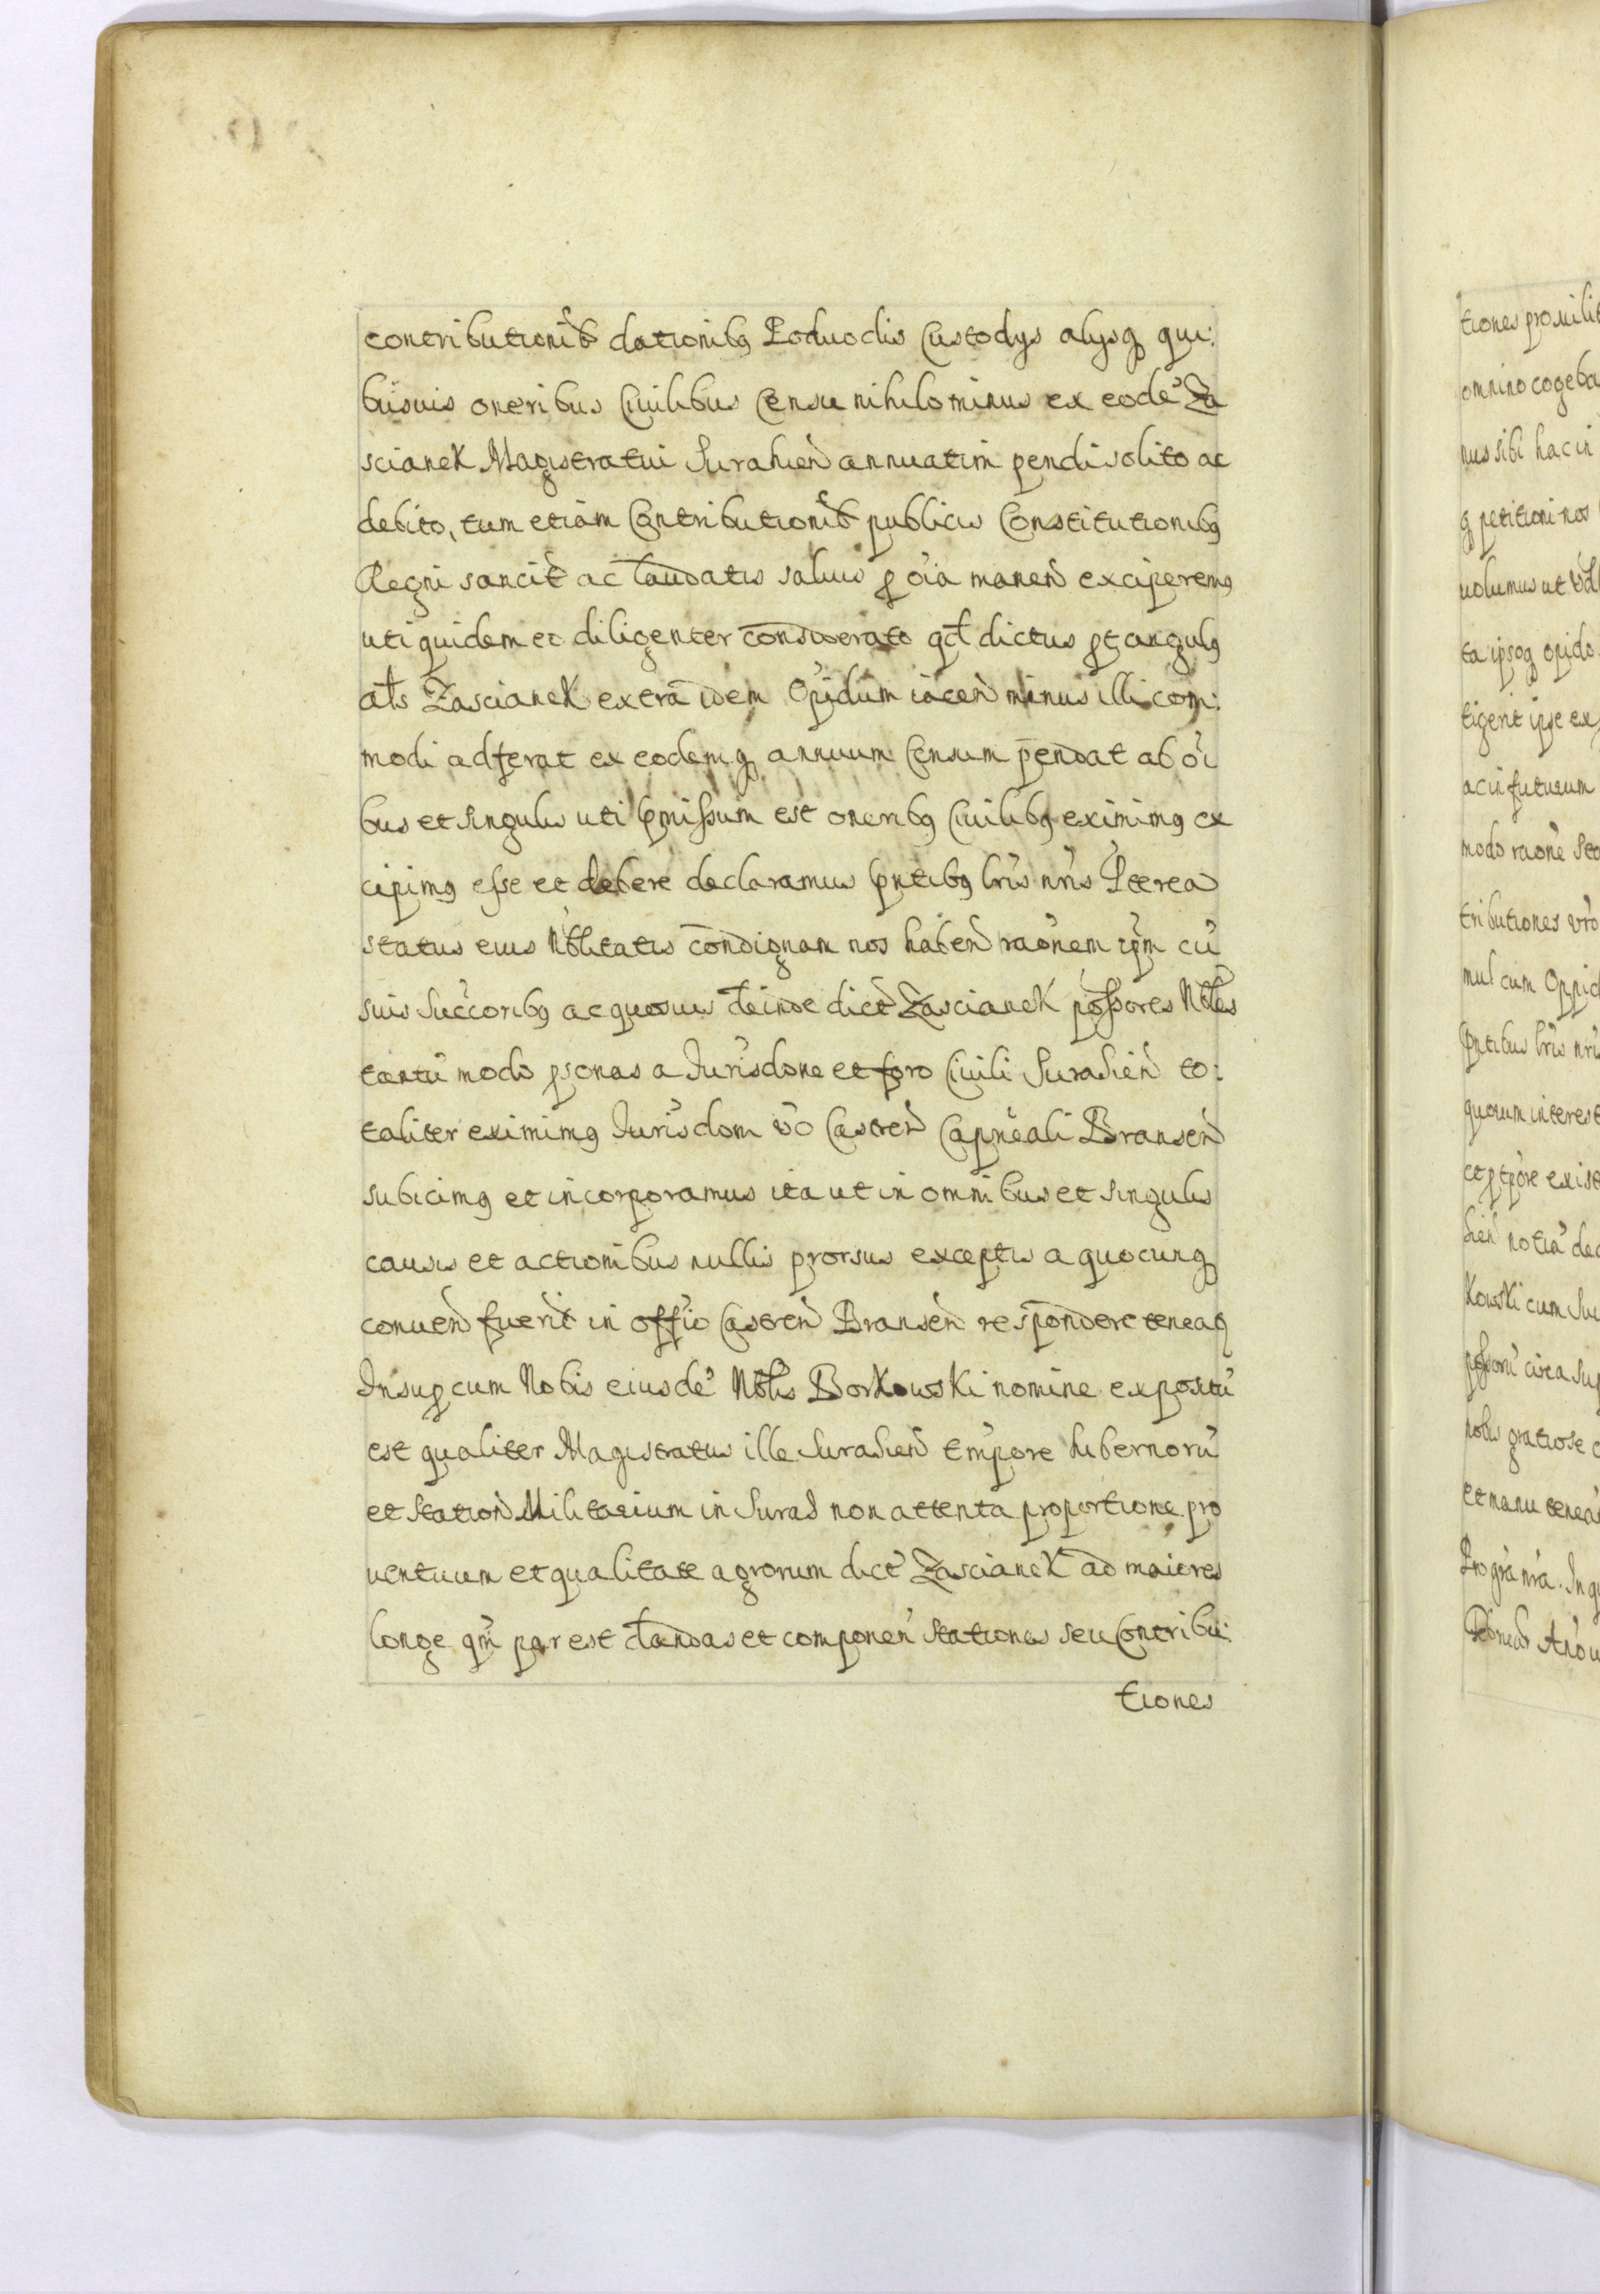 contributionib dationibq Poduodis Custodys alysq qui:
busuis oneribus Ciuilibus Censu nihilominus ex eode Za
scianek Magistratui Surahien annuatim pendi solito ac
debito, tum etiam Contributionib publicis Constitutionibq
Regni sancit ac laudatis saluis p oia manen exciperemq
uti quidem et diligenter considerato qd dictus angulq
als Zascianek extra idem Opidum iacen minus illi com:
modi adferat ex eodemq annuum Censum pendat ab oi
bus et singulis uti pmissum est oneribq Ciuilibq eximimq ex
cipimq esse et debere declaramus pntibq lris nris Pterea
status eius Nblitatis condignam nos haben raonem ipm cu
suis Succoribq ac quosuis deinde dict Zascianek possores Nbles
tantu modo psonas a Jurisdone et foro Ciuili Surasien to:
taliter eximimq Jurisdom vo Castren Capneali Bransen
subicimq et incorporamus ita ut in omnibus et singulis
causis et actionibus nullis prorsus exceptis a quocunq
conuen fuerit in offio Castren Bransen respondere teneaq
Insup cum Nobis eiusde Nblis Borkowski nomine expositu
est qualiter Magistratus ille Surasien tempore hibernoru
et Station Militarium in Suras non attenta proportione pro
uentuum et qualitate agrorum dict Zascianek ad maiores
longe qm par est dandas et componen stationes seu Contribu:
tiones
tiones
omnino
nus sibi hac in
q petitioni nos
uolumus ut
ta ipsoq opido
tigerit ipse ex
ac in futurum
modo raone
tributiones
mul cum
pntibus lris
quorum interest
notia
Kowski cum
circa
nobis gratiose
et manu